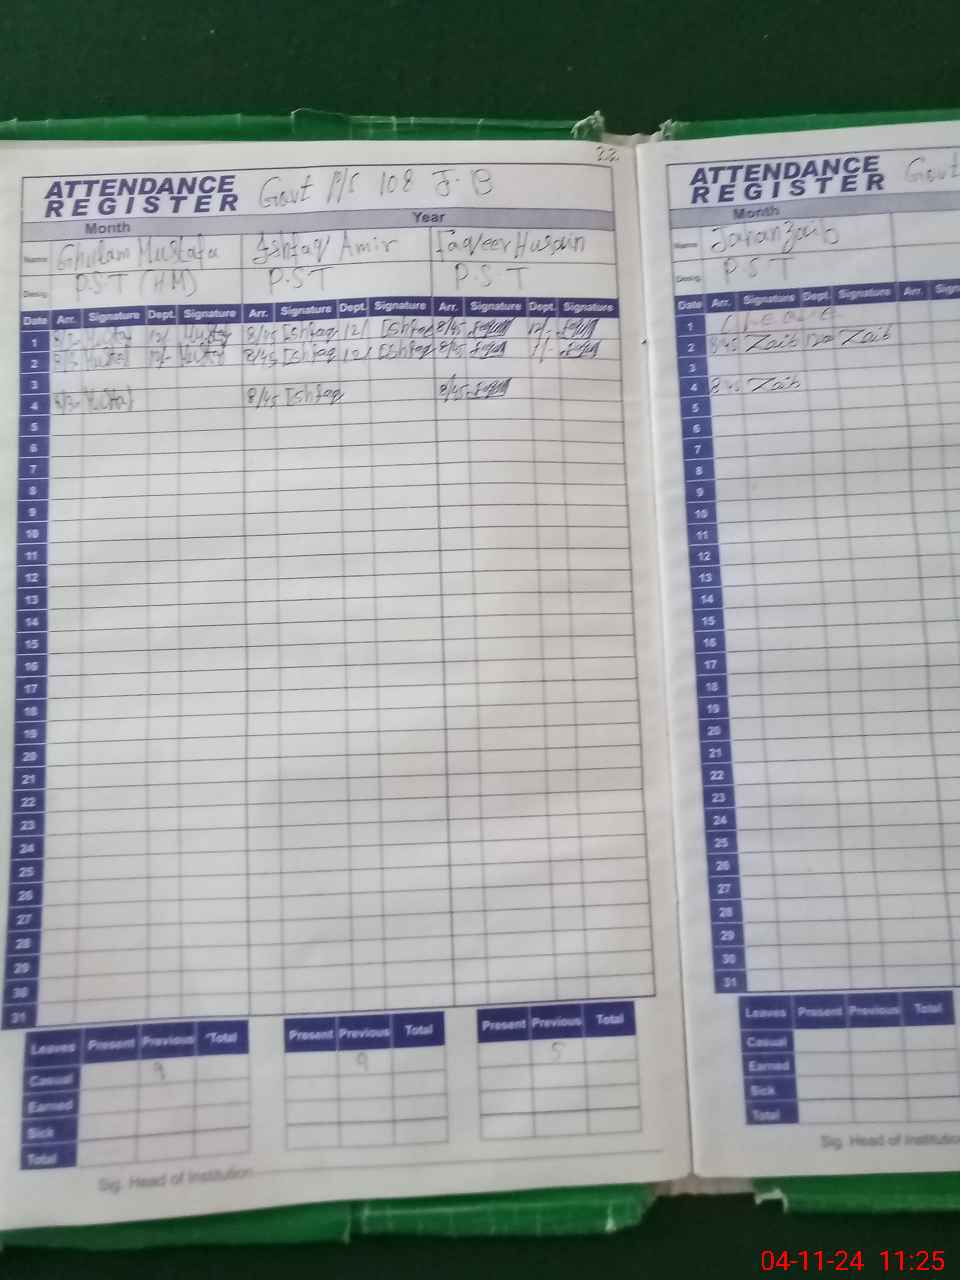 22.
ATTENDANCE REGISTER Govt P/S 108 J.B
Month Year
Name Ghulam Mustafa Ishfaq Amir Faqeer Husain
Desig. P.S.T (HM) P.S.T P.S T
Date Arr. Signature Dept. Signature Arr. Signature Dept. Signature Arr. Signature Dept. Signature
1 8/45 Ishfaq 12/ Ishfaq 8/45
2 8/45 Ishfaq 12/ Ishfaq 8/45
3
4 8/45 Ishfaq 8/45
5
6
7
8
9
10
11
12
13
14
15
16
17
18
19
20
21
22
23
24
25
26
27
28
29
30
31
Leaves Present Previous Total Present Previous Total Present Previous Total
Casual 9 9 5
Earned
Sick
Total
Sig. Head of Institution
ATTENDANCE REGISTER Govt
Month
Name Jahanzaib
Desig. P.S T
Date Arr. Signature Dept. Signature Arr.
1 L E A V E
2 8/45 Zaib Zaib
3
4 8/45 Zaib
5
6
7
8
9
10
11
12
13
14
15
16
17
18
19
20
21
22
23
24
25
26
27
28
29
30
31
Leaves Present Previous Total
Casual
Earned
Sick
Total
Sig. Head of
04-11-24 11:25